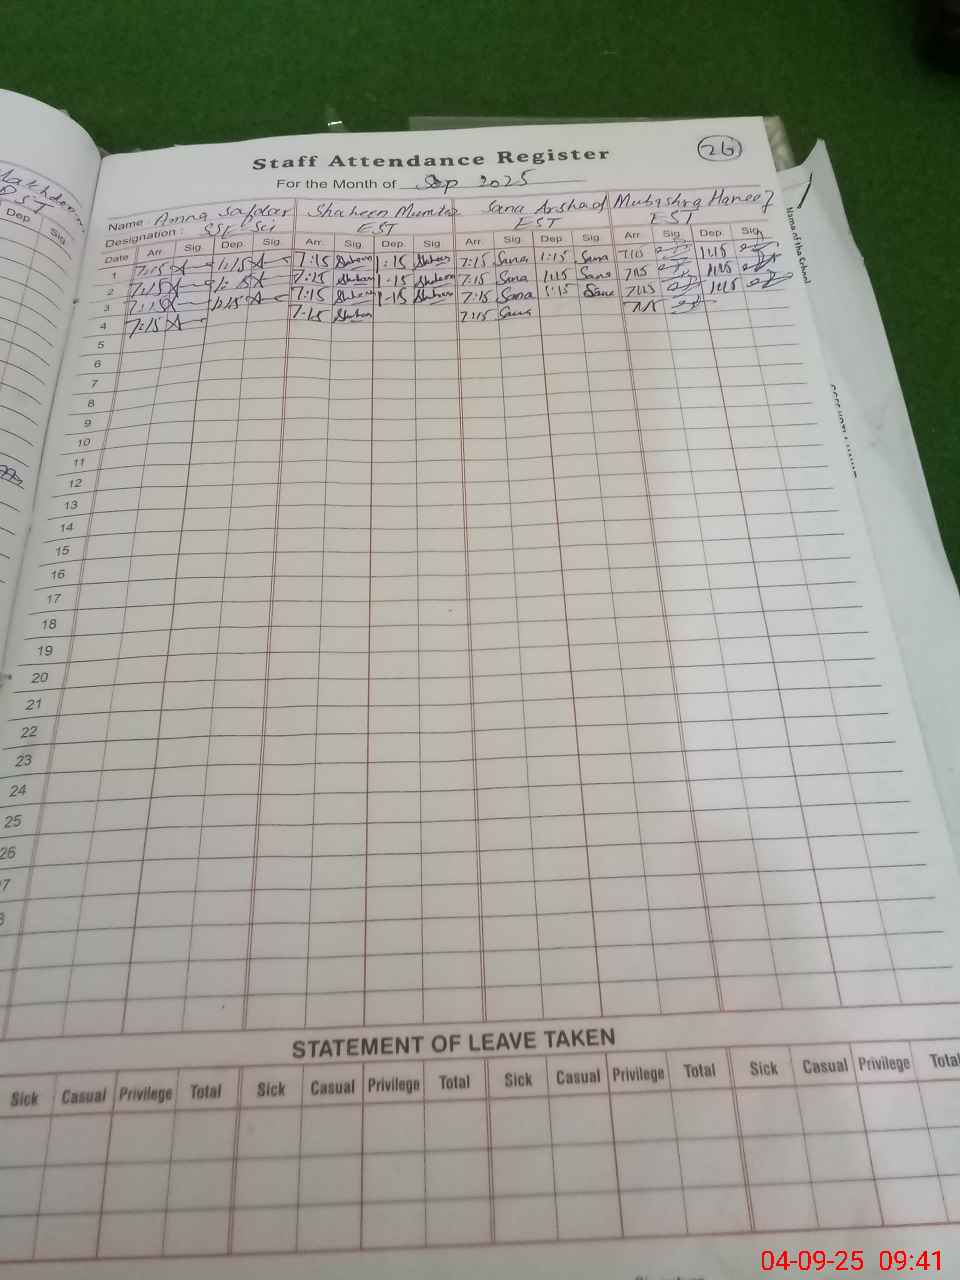 Staff Attendance Register
26
For the Month of Sep 2025
Name Amna Safdar Shaheen Mumtaz Sana Arshad Mubashra Haneef
Designation : SSE Sci EST EST EST
Date Arr. Sig. Dep. Sig. Arr. Sig. Dep. Sig. Arr. Sig. Dep. Sig. Arr. Sig. Dep. Sig.
1 7:15 1:15 7:15 Shaheen 1:15 Shaheen 7:15 Sana 1:15 Sana 7:15 1:15
2 7:15 1:15 7:15 Shaheen 1-15 Shaheen 7:15 Sana 1:15 Sana 7:15 1:15
3 7:15 1:15 7:15 Shaheen 1-15 Shaheen 7:15 Sana 1:15 Sana 7:15 1:15
4 7:15 7:15 Shaheen 7:15 Sana 7:15
5
6
7
8
9
10
11
12
13
14
15
16
17
18
19
20
21
22
23
24
25
26
7
8
STATEMENT OF LEAVE TAKEN
Sick Casual Privilege Total Sick Casual Privilege Total Sick Casual Privilege Total Sick Casual Privilege Total
Dep Sig.
Name of the School
04-09-25 09:41